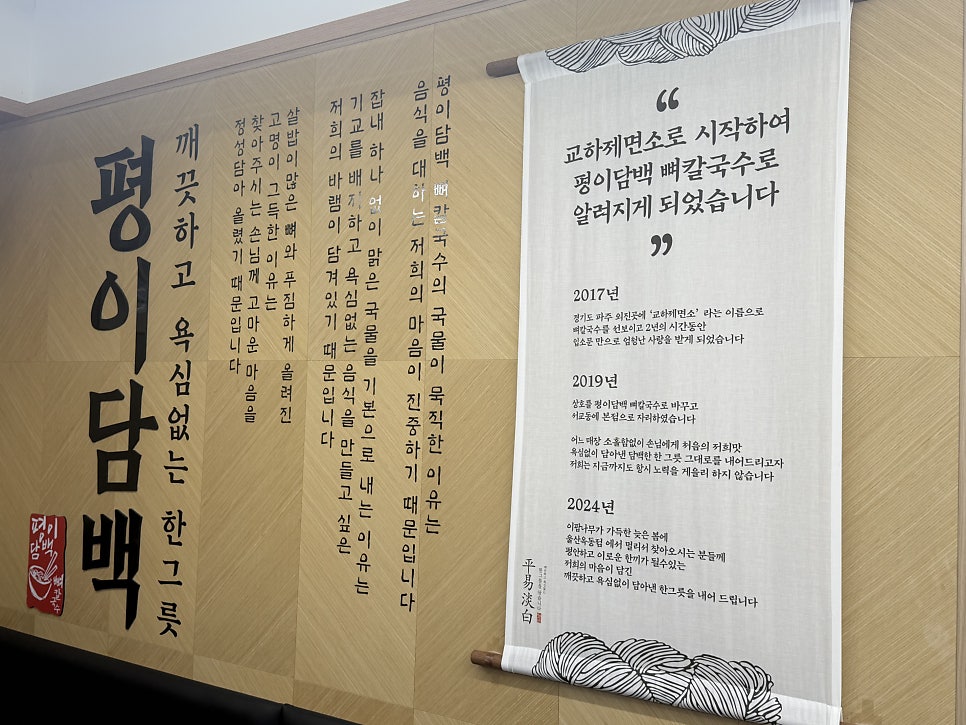 깨끗하고 욕심없는 한그릇
평이담백
평이
담백
뼈칼국수
평이담백 뼈칼국수의 국물이 묵직한 이유는
음식을 대하는 저희의 마음이 진중하기 때문입니다
잡내 하나 없이 맑은 국물을 기본으로 내는 이유는
기교를 배제하고 욕심없는 음식을 만들고 싶은
저희의 바램이 담겨있기 때문입니다
살밥이 많은 뼈와 푸짐하게 올려진
고명이 그득한 이유는
찾아주시는 손님께 고마운 마음을
정성담아 올렸기 때문입니다
“
교하제면소로 시작하여
평이담백 뼈칼국수로
알려지게 되었습니다
”
2017년
경기도 파주 외진곳에 ‘교하제면소’ 라는 이름으로
뼈칼국수를 선보이고 2년의 시간동안
입소문 만으로 엄청난 사랑을 받게 되었습니다
2019년
상호를 평이담백 뼈칼국수로 바꾸고
서교동에 본점으로 자리하였습니다
어느 매장 소홀함없이 손님에게 처음의 저희맛
욕심없이 담아낸 담백한 한 그릇 그대로를 내어드리고자
저희는 지금까지도 항시 노력을 게을리 하지 않습니다
2024년
이팝나무가 가득한 늦은 봄에
울산옥동점 에서 멀리서 찾아오시는 분들께
평안하고 이로운 한끼가 될수있는
저희의 마음이 담긴
깨끗하고 욕심없이 담아낸 한그릇을 내어 드립니다
平易淡白